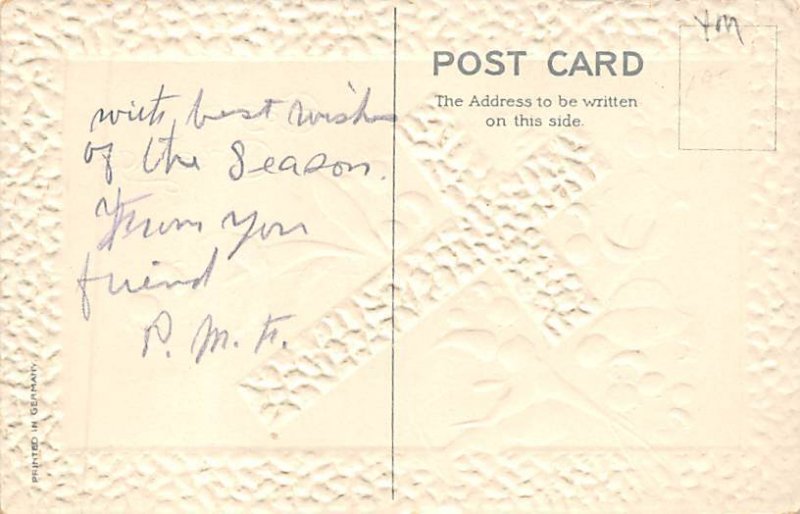 with best wishes
of the Season.
From you
friend
P. M. F.
POST CARD
The Address to be written
on this side.
PRINTED IN GERMANY